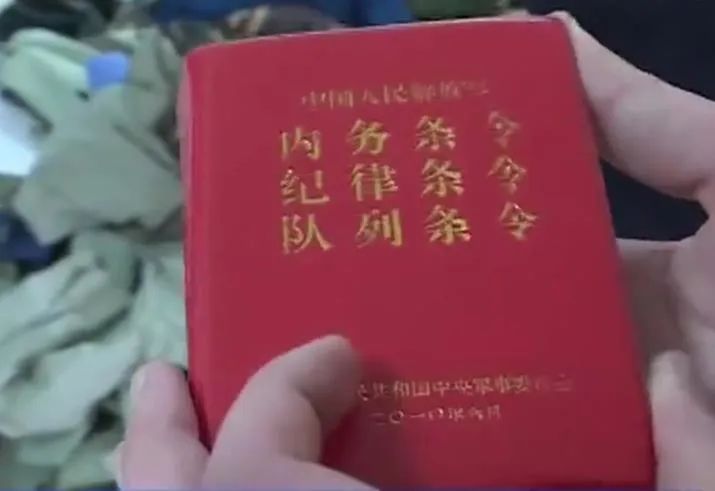 中国人民解放军
内务条令
纪律条令
队列条令
民共和国中央军事委员会
二〇一〇年六月